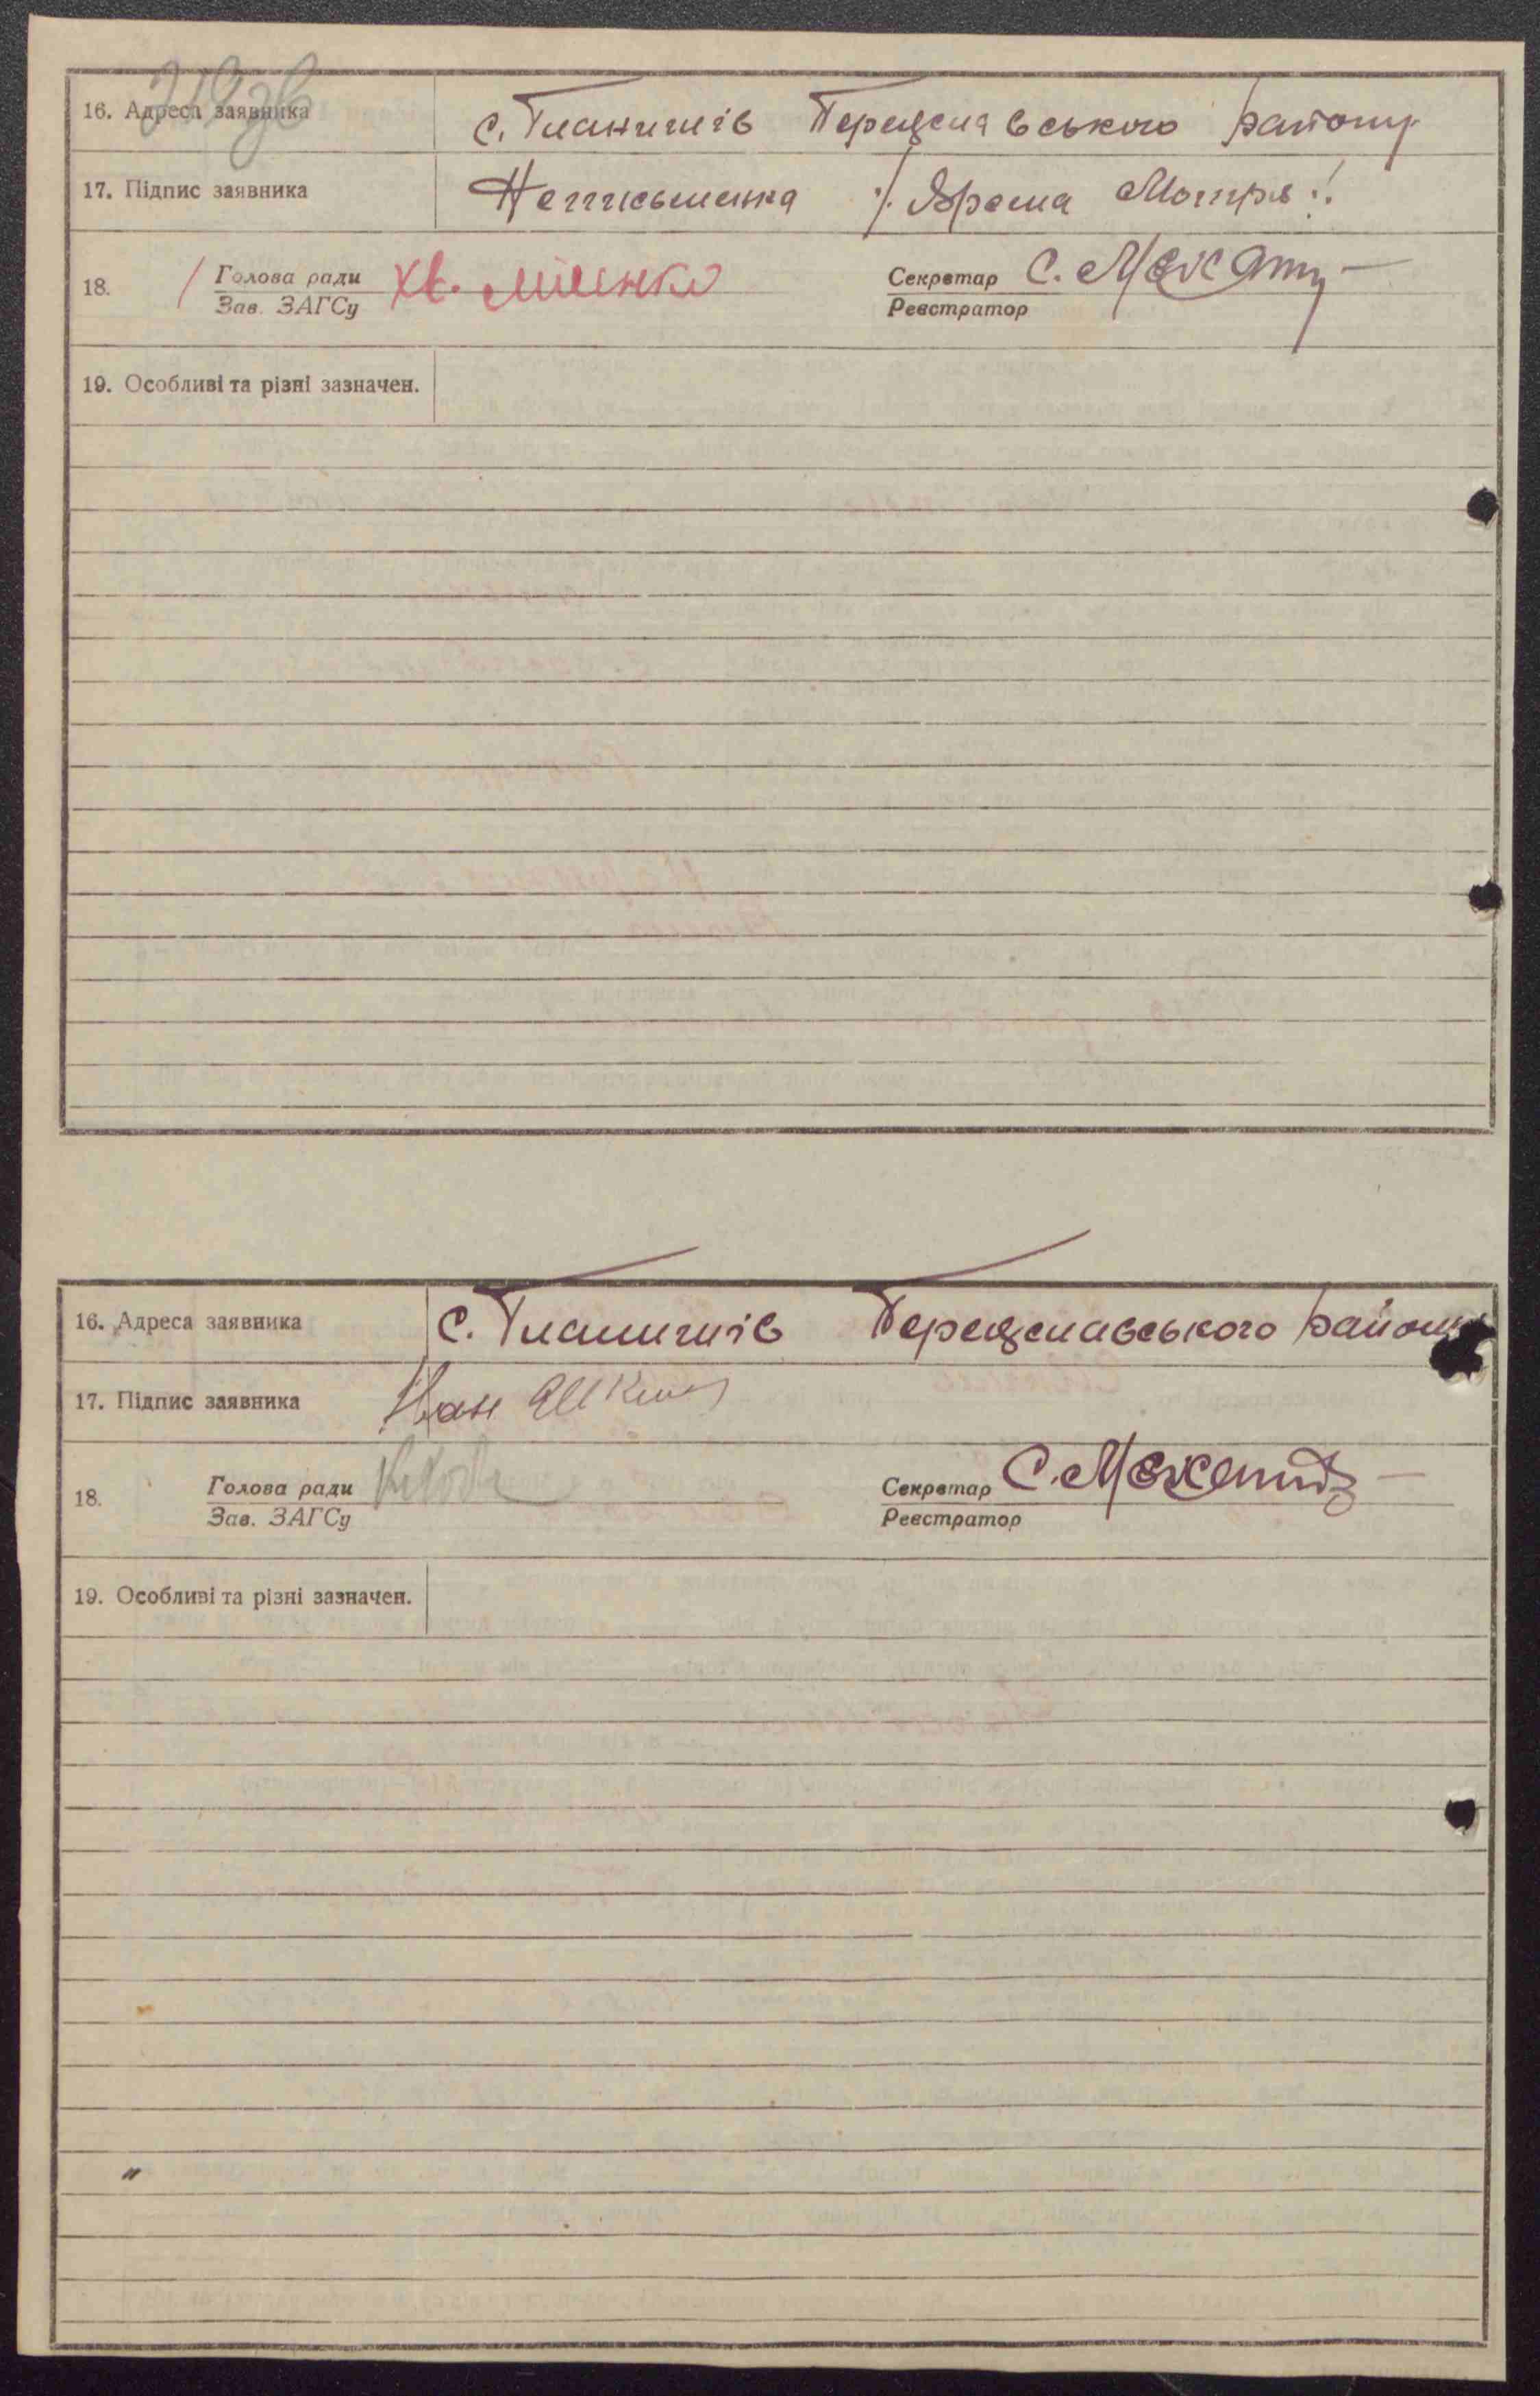 16. Адреса заявника с. Гланишів Переяславського району
17. Підпис заявника Неписьменна /. Ярема Мотря ./
18. Голова ради Секретар
Зав. ЗАГСу Реєстратор
19. Особливі та різні зазначен.
16. Адреса заявника с. Гланишів Переяславського району
17. Підпис заявника Іван
18. Голова ради Секретар
Зав. ЗАГСу Реєстратор
19. Особливі та різні зазначен.